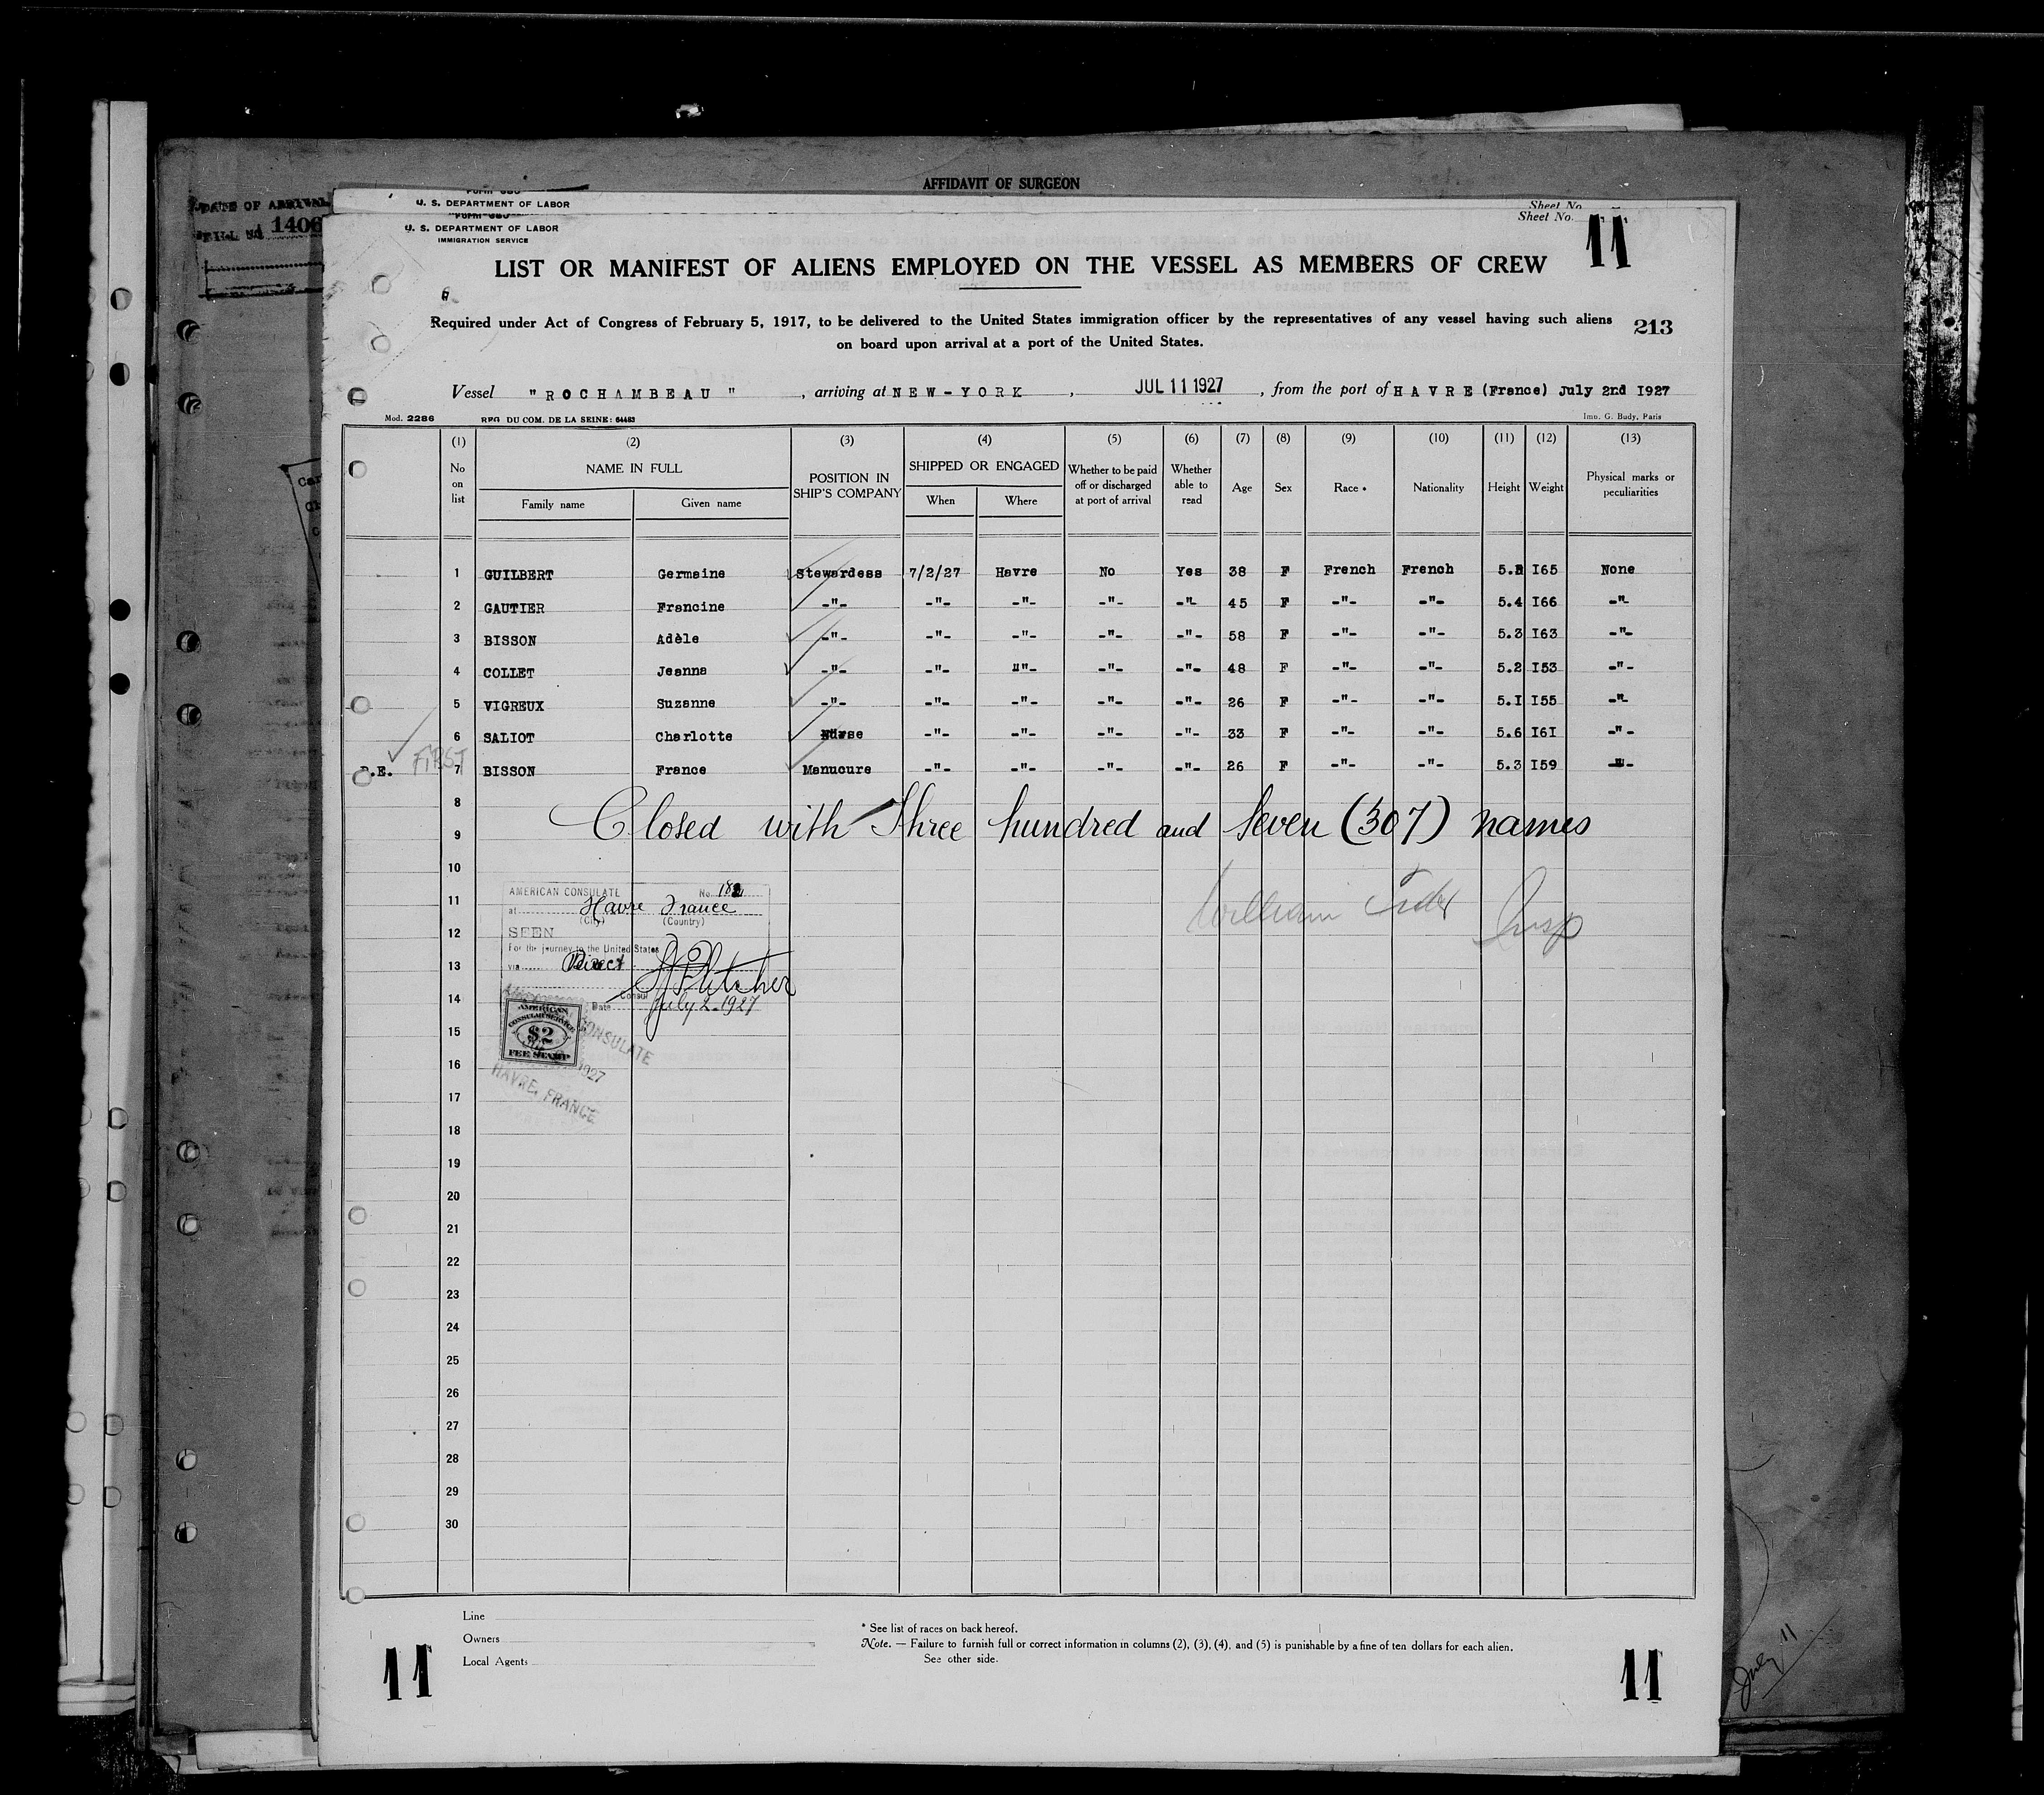 AFFIDAVIT OF SURGEON
DATE OF ARRIVAL
1406
U. S. DEPARTMENT OF LABOR
Sheet No.
U. S. DEPARTMENT OF LABOR
IMMIGRATION SERVICE
Sheet No.
11
LIST OR MANIFEST OF ALIENS EMPLOYED ON THE VESSEL AS MEMBERS OF CREW
Required under Act of Congress of February 5, 1917, to be delivered to the United States immigration officer by the representatives of any vessel having such aliens
on board upon arrival at a port of the United States.
213
Vessel "ROCHAMBEAU", arriving at NEW-YORK, JUL 11 1927, from the port of HAVRE (France) July 2nd I927
Mod. 2286 REG. DU COM. DE LA SEINE: 64483 Imp. G. Budy, Paris
(1) (2) (3) (4) (5) (6) (7) (8) (9) (10) (11) (12) (13)
No on list NAME IN FULL Family name Given name POSITION IN SHIP'S COMPANY SHIPPED OR ENGAGED When Where Whether to be paid off or discharged at port of arrival Whether able to read Age Sex Race * Nationality Height Weight Physical marks or peculiarities
1 GUILBERT Germaine Stewardess 7/2/27 Havre No Yes 38 F French French 5. I65 None
2 GAUTIER Francine -"- -"- -"- -"- -"- 45 F -"- -"- 5.4 I66 -"-
3 BISSON Adèle -"- -"- -"- -"- -"- 58 F -"- -"- 5.3 I63 -"-
4 COLLET Jeanna -"- -"- ""- -"- -"- 48 F -"- -"- 5.2 I53 -"-
5 VIGREUX Suzanne -"- -"- -"- -"- -"- 26 F -"- -"- 5.I I55 -"-
6 SALIOT Charlotte Nurse -"- -"- -"- -"- 33 F -"- -"- 5.6 I6I -"-
FIRST 7 BISSON France Manucure -"- -"- -"- -"- 26 F -"- -"- 5.3 I59 -"-
8
9 Closed with Three hundred and Seven (307) names
10
11
12
13
14
15
16
17
18
19
20
21
22
23
24
25
26
27
28
29
30
AMERICAN CONSULATE No.
at Havre France
(City) (Country)
SEEN
For the journey to the United States
via Direct
Consul
Date July 2. 1927
AMERICAN
CONSULAR SERVICE
$2
FEE STAMP
CONSULATE
1927
HAVRE, FRANCE
William Insp
Line
Owners
Local Agents
* See list of races on back hereof.
Note. — Failure to furnish full or correct information in columns (2), (3), (4), and (5) is punishable by a fine of ten dollars for each alien.
See other side.
11
11
July 11